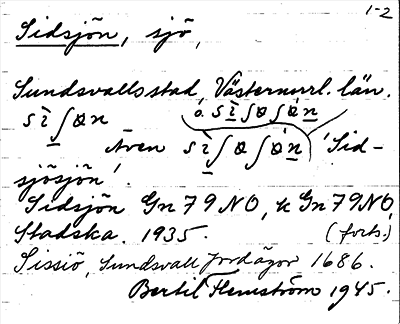 1-2
Sidsjön, sjö,
Sundsvalls stad, Västernorrl. län.
Även 'Sid-
sjösjön'.
Sidsjön Gn 79 NO, k Gn 79 NO,
Stadska. 1935. (forts.)
Sissiö, Sundsvall jordägor 1686.
Bertil Flemström 1945.